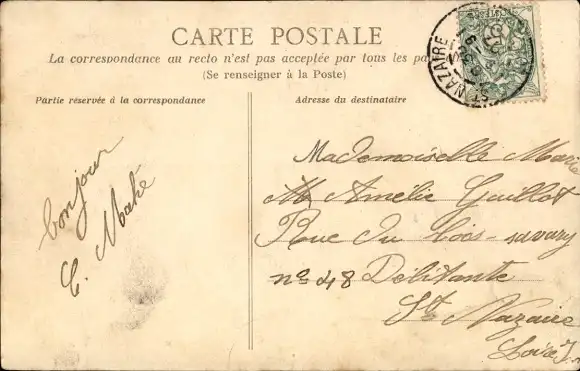 CARTE POSTALE
La correspondance au recto n'est pas acceptée par tous les pa
(Se renseigner à la Poste)
Partie réservée à la correspondance
Adresse du destinataire
ST NAZAIRE
bonjour
C. Mahé
Mademoiselle Marie
Amélie Guillot
Rue du bois-savary
nº 48 Débitante
St Nazaire
Loire